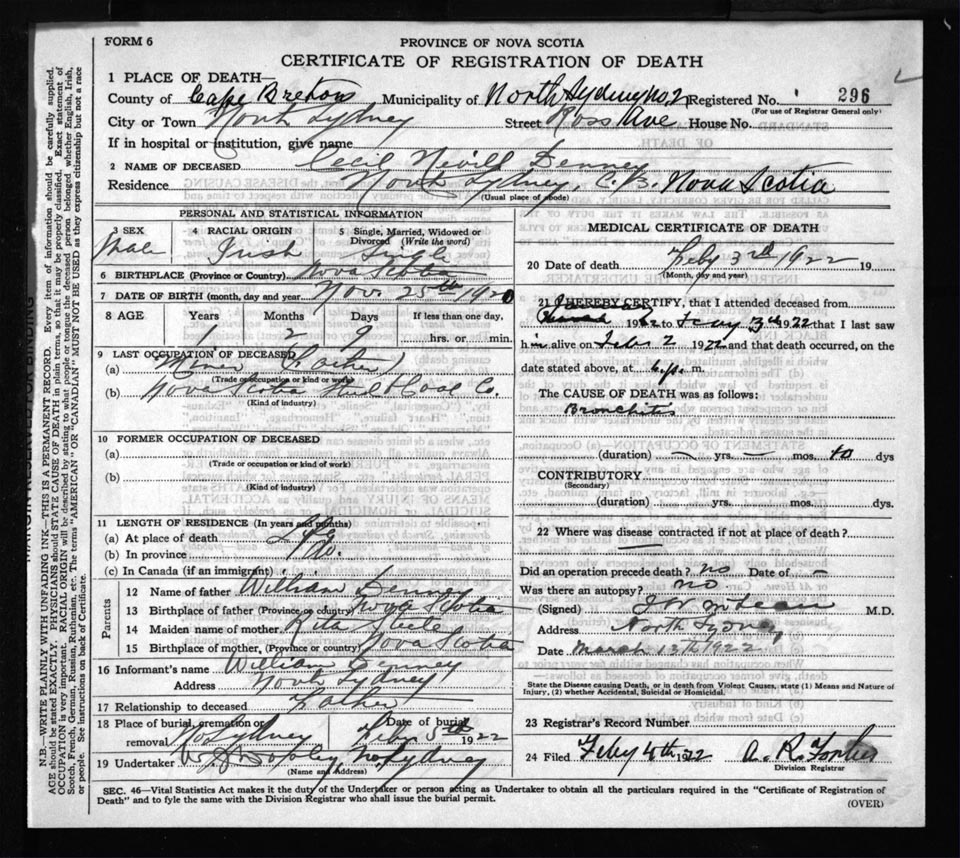 FORM 6
PROVINCE OF NOVA SCOTIA
CERTIFICATE OF REGISTRATION OF DEATH
1 PLACE OF DEATH—
County of Cape Breton Municipality of North Sydney no. 2 Registered No. 296
(For use of Registrar General only)
City or Town North Sydney Street Ross Ave House No.
If in hospital or institution, give name
2 NAME OF DECEASED Cecil Nevill Denney
Residence North Sydney, C.B. Nova Scotia
(Usual place of abode)
PERSONAL AND STATISTICAL INFORMATION
3 SEX 4 RACIAL ORIGIN 5 Single, Married, Widowed or Divorced (Write the word)
Male Irish Single
6 BIRTHPLACE (Province or Country) Nova Scotia
7 DATE OF BIRTH (month, day and year) Nov. 25th 1920
8 AGE Years Months Days If less than one day,
1 2 9 hrs. or min.
9 LAST OCCUPATION OF DECEASED
(a) Miner (Father)
(Trade or occupation or kind of work)
(b) Nova Scotia Steel & Coal Co.
(Kind of industry)
10 FORMER OCCUPATION OF DECEASED
(a)
(Trade or occupation or kind of work)
(b)
(Kind of industry)
11 LENGTH OF RESIDENCE (In years and months)
(a) At place of death Life
(b) In province Do.
(c) In Canada (if an immigrant)
Parents
12 Name of father William Denney
13 Birthplace of father (Province or country) Nova Scotia
14 Maiden name of mother Rita Steele
15 Birthplace of mother, (Province or country) Nova Scotia
16 Informant's name William Denney
Address North Sydney
17 Relationship to deceased Father
18 Place of burial, cremation or Date of burial
removal No Sydney Feby 5th 1922
19 Undertaker No Sydney
(Name and Address)
MEDICAL CERTIFICATE OF DEATH
20 Date of death Feby 3rd 1922 19
(Month, day and year)
21 I HEREBY CERTIFY, that I attended deceased from
1922 to 1922 that I last saw
him alive on Feb 2 1922 and that death occurred, on the
date stated above, at m.
The CAUSE OF DEATH was as follows:
Bronchitis
(duration) — yrs. — mos. 10 dys
CONTRIBUTORY
(Secondary)
(duration) yrs. mos. dys.
22 Where was disease contracted if not at place of death?
—
Did an operation precede death? no Date of —
Was there an autopsy? no
(Signed) M.D.
Address North Sydney
Date March 13th 1922
State the Disease causing Death, or in death from Violent Causes, state (1) Means and Nature of
Injury, (2) whether Accidental, Suicidal or Homicidal.
23 Registrar's Record Number
24 Filed Feby 4th 1922 A. R. Forbes
Division Registrar
SEC. 46—Vital Statistics Act makes it the duty of the Undertaker or person acting as Undertaker to obtain all the particulars required in the "Certificate of Registration of
Death" and to fyle the same with the Division Registrar who shall issue the burial permit.
(OVER)
N.B.—WRITE PLAINLY WITH UNFADING INK—THIS IS A PERMANENT RECORD. Every item of information should be carefully supplied.
AGE should be stated EXACTLY. PHYSICIANS should STATE CAUSE OF DEATH in plain terms, so that it may be properly classified. Exact statement of
OCCUPATION is very important. RACIAL ORIGIN will be described by stating to what people or tongue the deceased person belonged whether English, Irish,
Scotch, French, German, Russian, Ruthenian, etc. The terms "AMERICAN" OR "CANADIAN" MUST NOT BE USED as they express citizenship but not a race
or people. See instructions on back of Certificate.